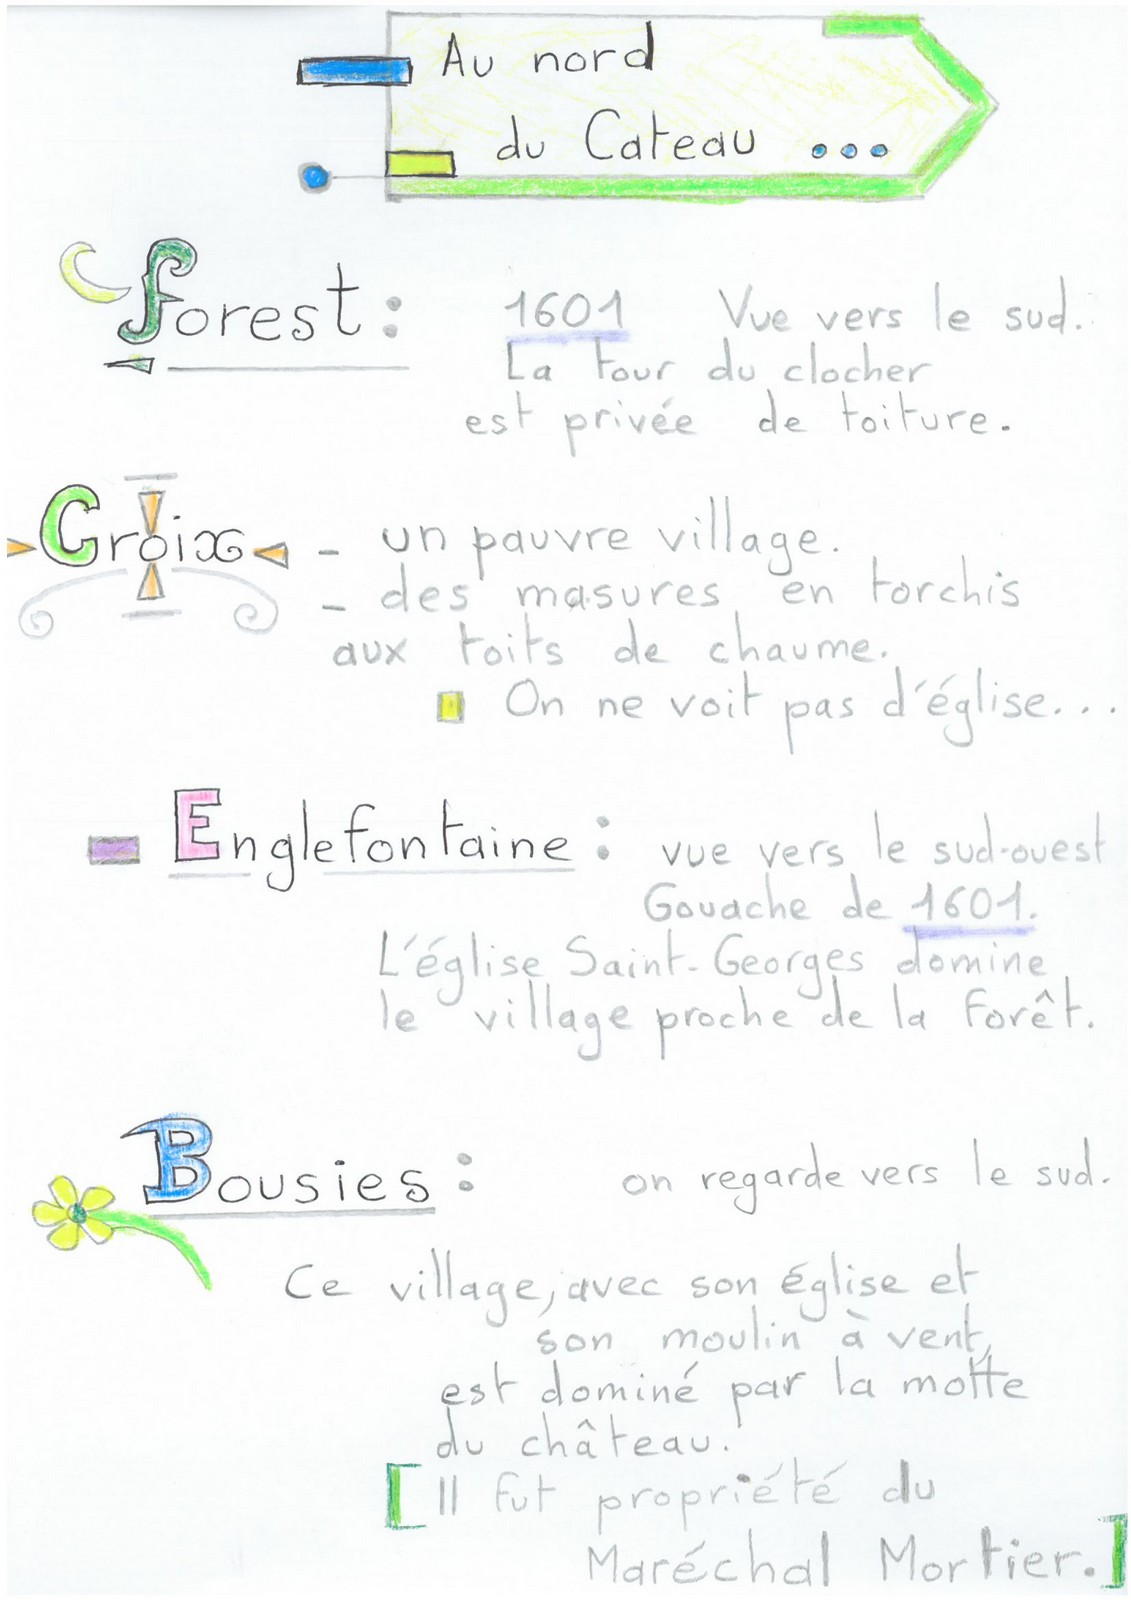 Au nord
du Cateau ...
Forest : 1601 Vue vers le sud.
La tour du clocher
est privée de toiture.
Croix - un pauvre village.
- des masures en torchis
aux toits de chaume.
On ne voit pas d'église...
Englefontaine : vue vers le sud-ouest
Gouache de 1601.
L'église Saint-Georges domine
le village proche de la forêt.
Bousies : on regarde vers le sud.
Ce village, avec son église et
son moulin à vent,
est dominé par la motte
du château.
[Il fut propriété du
Maréchal Mortier.]